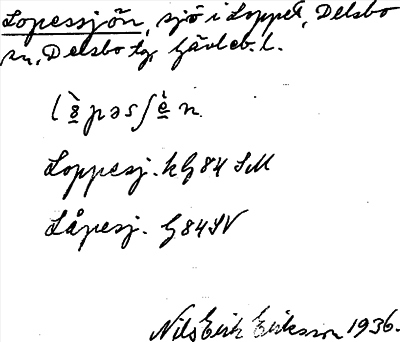 Lopessjön, sjö i Loppet, Delsbo
sn, Delsbo tg, Gävleb. l.
Loppesj. kG84 SM
Låpesj. G84SV
Nils Erik Eriksson 1936.